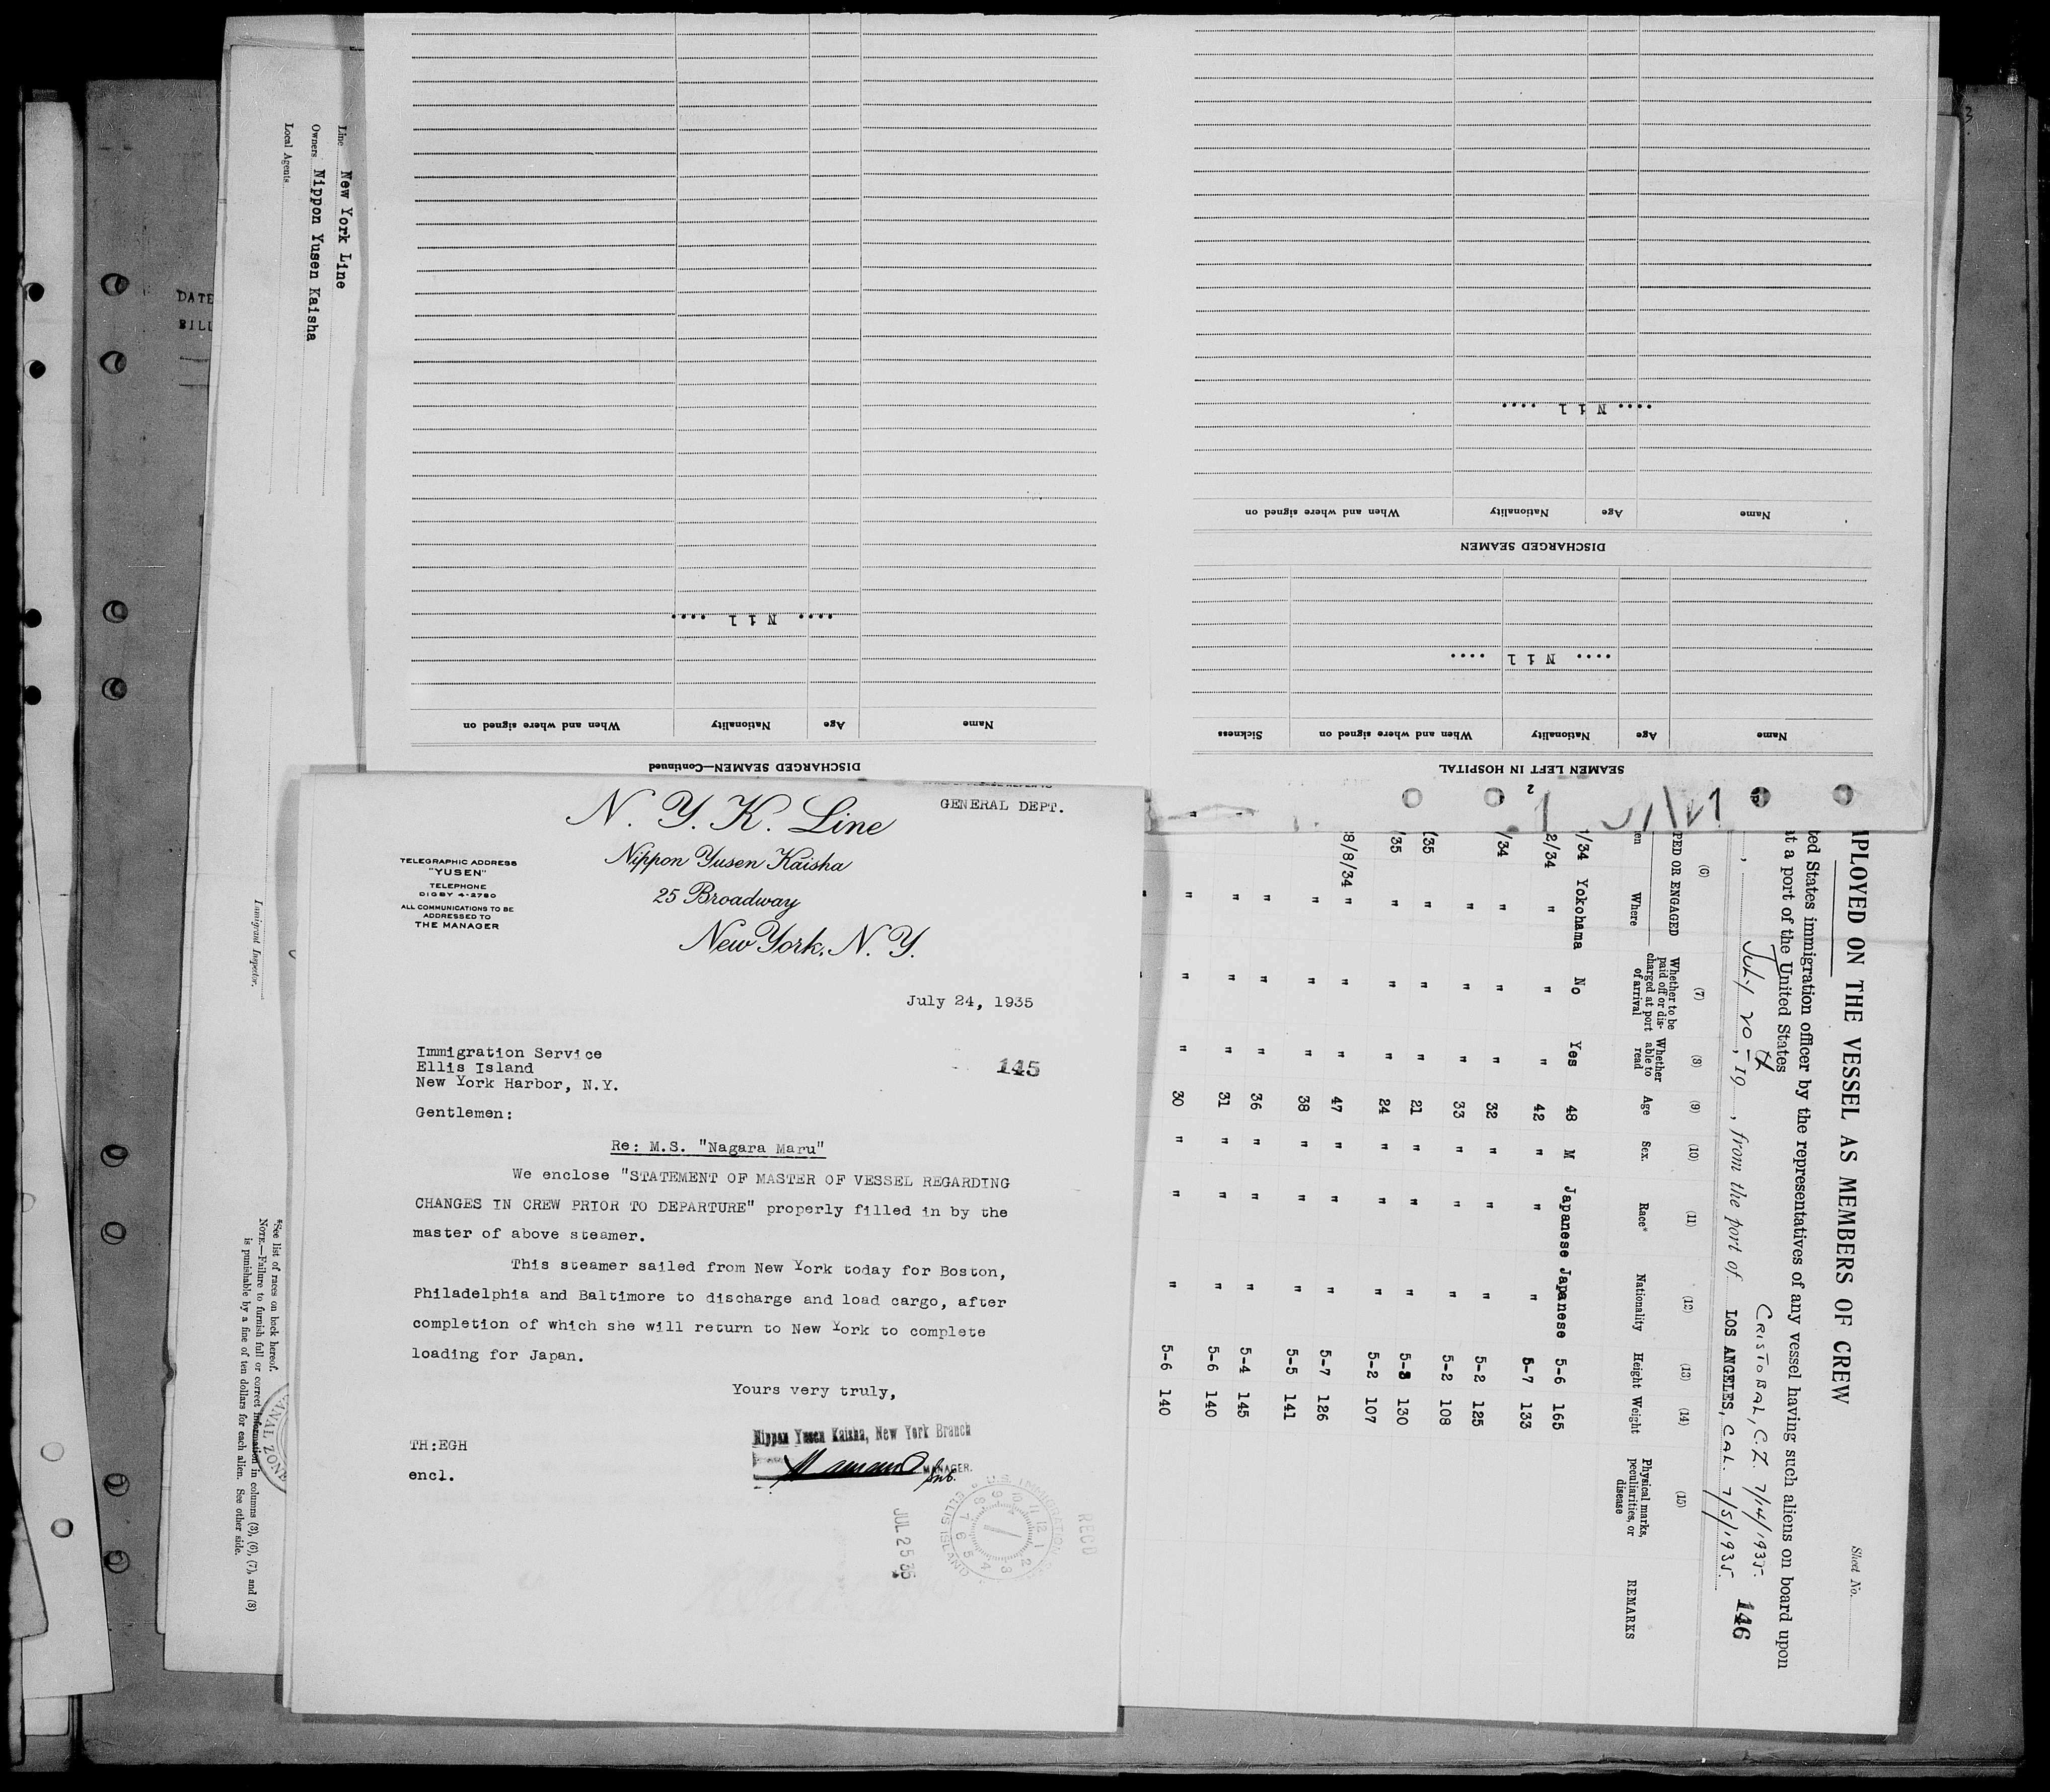 Line New York Line
Owners Nippon Yusen Kaisha
Local Agents
Immigrant Inspector.
*See list of races on back hereof.
NOTE.—Failure to furnish full or correct information in columns (3), (6), (7), and (8)
is punishable by a fine of ten dollars for each alien. See other side.
DATE
DISCHARGED SEAMEN—Continued
Name Age Nationality When and where signed on
.... Nil ....
SEAMEN LEFT IN HOSPITAL
Name Age Nationality When and where signed on Sickness
.... Nil ....
DISCHARGED SEAMEN
Name Age Nationality When and where signed on
.... Nil ....
GENERAL DEPT.
N. Y. K. Line
Nippon Yusen Kaisha
25 Broadway
New York, N. Y.
TELEGRAPHIC ADDRESS
"YUSEN"
TELEPHONE
DIGBY 4-2780
ALL COMMUNICATIONS TO BE
ADDRESSED TO
THE MANAGER
July 24, 1935
Immigration Service
Ellis Island
New York Harbor, N.Y.
145
Gentlemen:
Re: M.S. "Nagara Maru"
We enclose "STATEMENT OF MASTER OF VESSEL REGARDING
CHANGES IN CREW PRIOR TO DEPARTURE" properly filled in by the
master of above steamer.
This steamer sailed from New York today for Boston,
Philadelphia and Baltimore to discharge and load cargo, after
completion of which she will return to New York to complete
loading for Japan.
Yours very truly,
Nippon Yusen Kaisha, New York Branch
MANAGER.
TH:EGH
encl.
U.S. IMMIGRATION
ELLIS ISLAND
JUL 25 35
RECD
Sheet No.
PLOYED ON THE VESSEL AS MEMBERS OF CREW
ted States immigration officer by the representatives of any vessel having such aliens on board upon
at a port of the United States
CRISTOBAL, C.Z. 7/14/1935.
146
July 20th, 19 , from the port of LOS ANGELES, CAL. 7/5/1935.
(6) (7) (8) (9) (10) (11) (12) (13) (14) (15)
PED OR ENGAGED
Where
Whether to be paid off or discharged at port of arrival
Whether able to read
Age Sex. Race* Nationality Height Weight
Physical marks, peculiarities, or disease
REMARKS
/34 Yokohama No Yes 48 M Japanese Japanese 5-6 165
2/34 " " " 42 " " " 5-7 133
/34 " " " 32 " " " 5-2 125
" " " 33 " " " 5-2 108
/35 " " " 21 " " " 5-3 130
/35 " " " 24 " " " 5-2 107
8/8/34 " " " 47 " " " 5-7 126
" " " 38 " " " 5-5 141
" " " 36 " " " 5-4 145
" " " 31 " " " 5-6 140
" " " 30 " " " 5-6 140